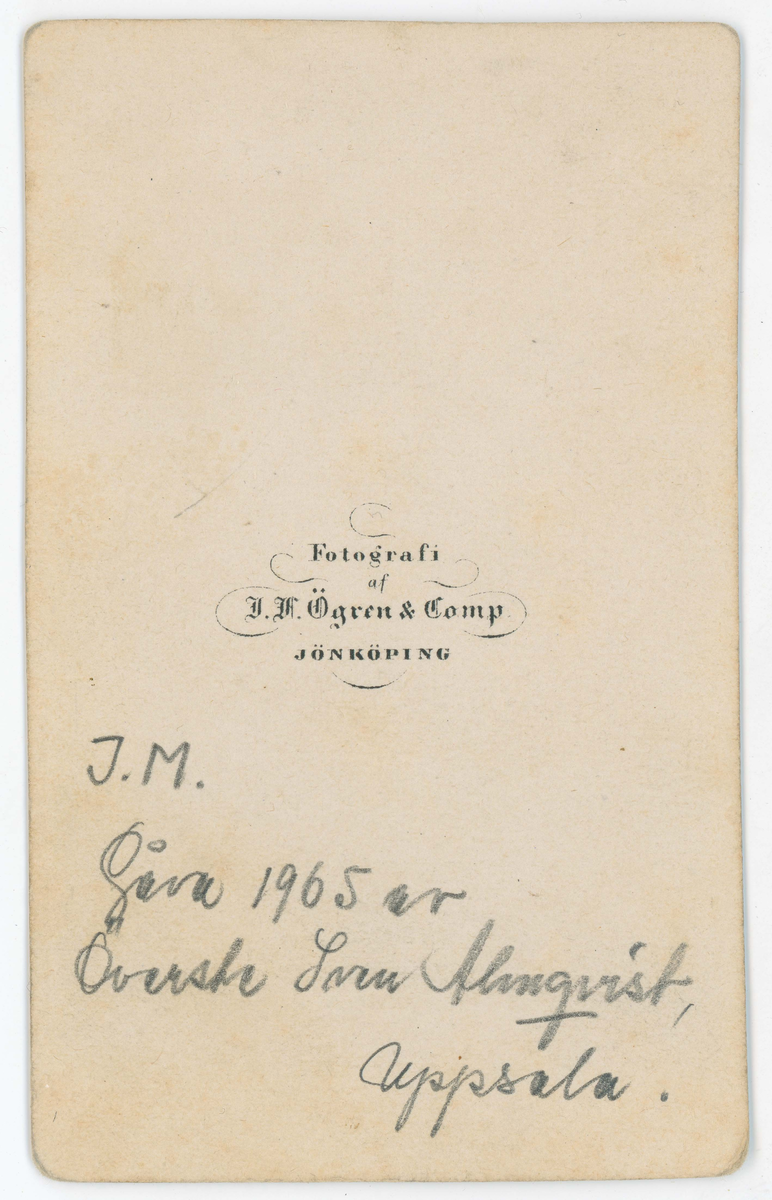 Fotografi
af
J. F. Ögren & Comp
JÖNKÖPING
J.M.
Gåva 1965 av
Överste Sven Almqvist,
Uppsala.